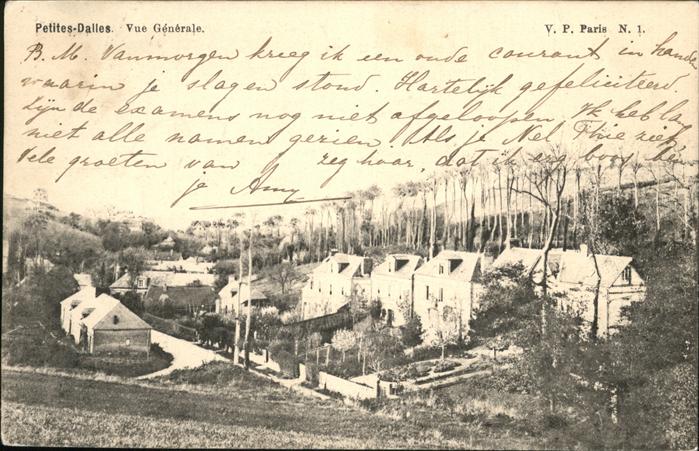 Petites-Dalles. Vue Générale. V. P. Paris N. 1.
B. M. Vanmorgen kreeg ik een oude courant in handen
waarin je slagen stond. Hartelijk gefeliciteerd.
Zijn de examens nog niet afgeloopen, Ik heb lan
niet alle namen gezien. Als je Nel ziet,
Vele groeten van zeg haar, dat ik erg boos ben
je Amy